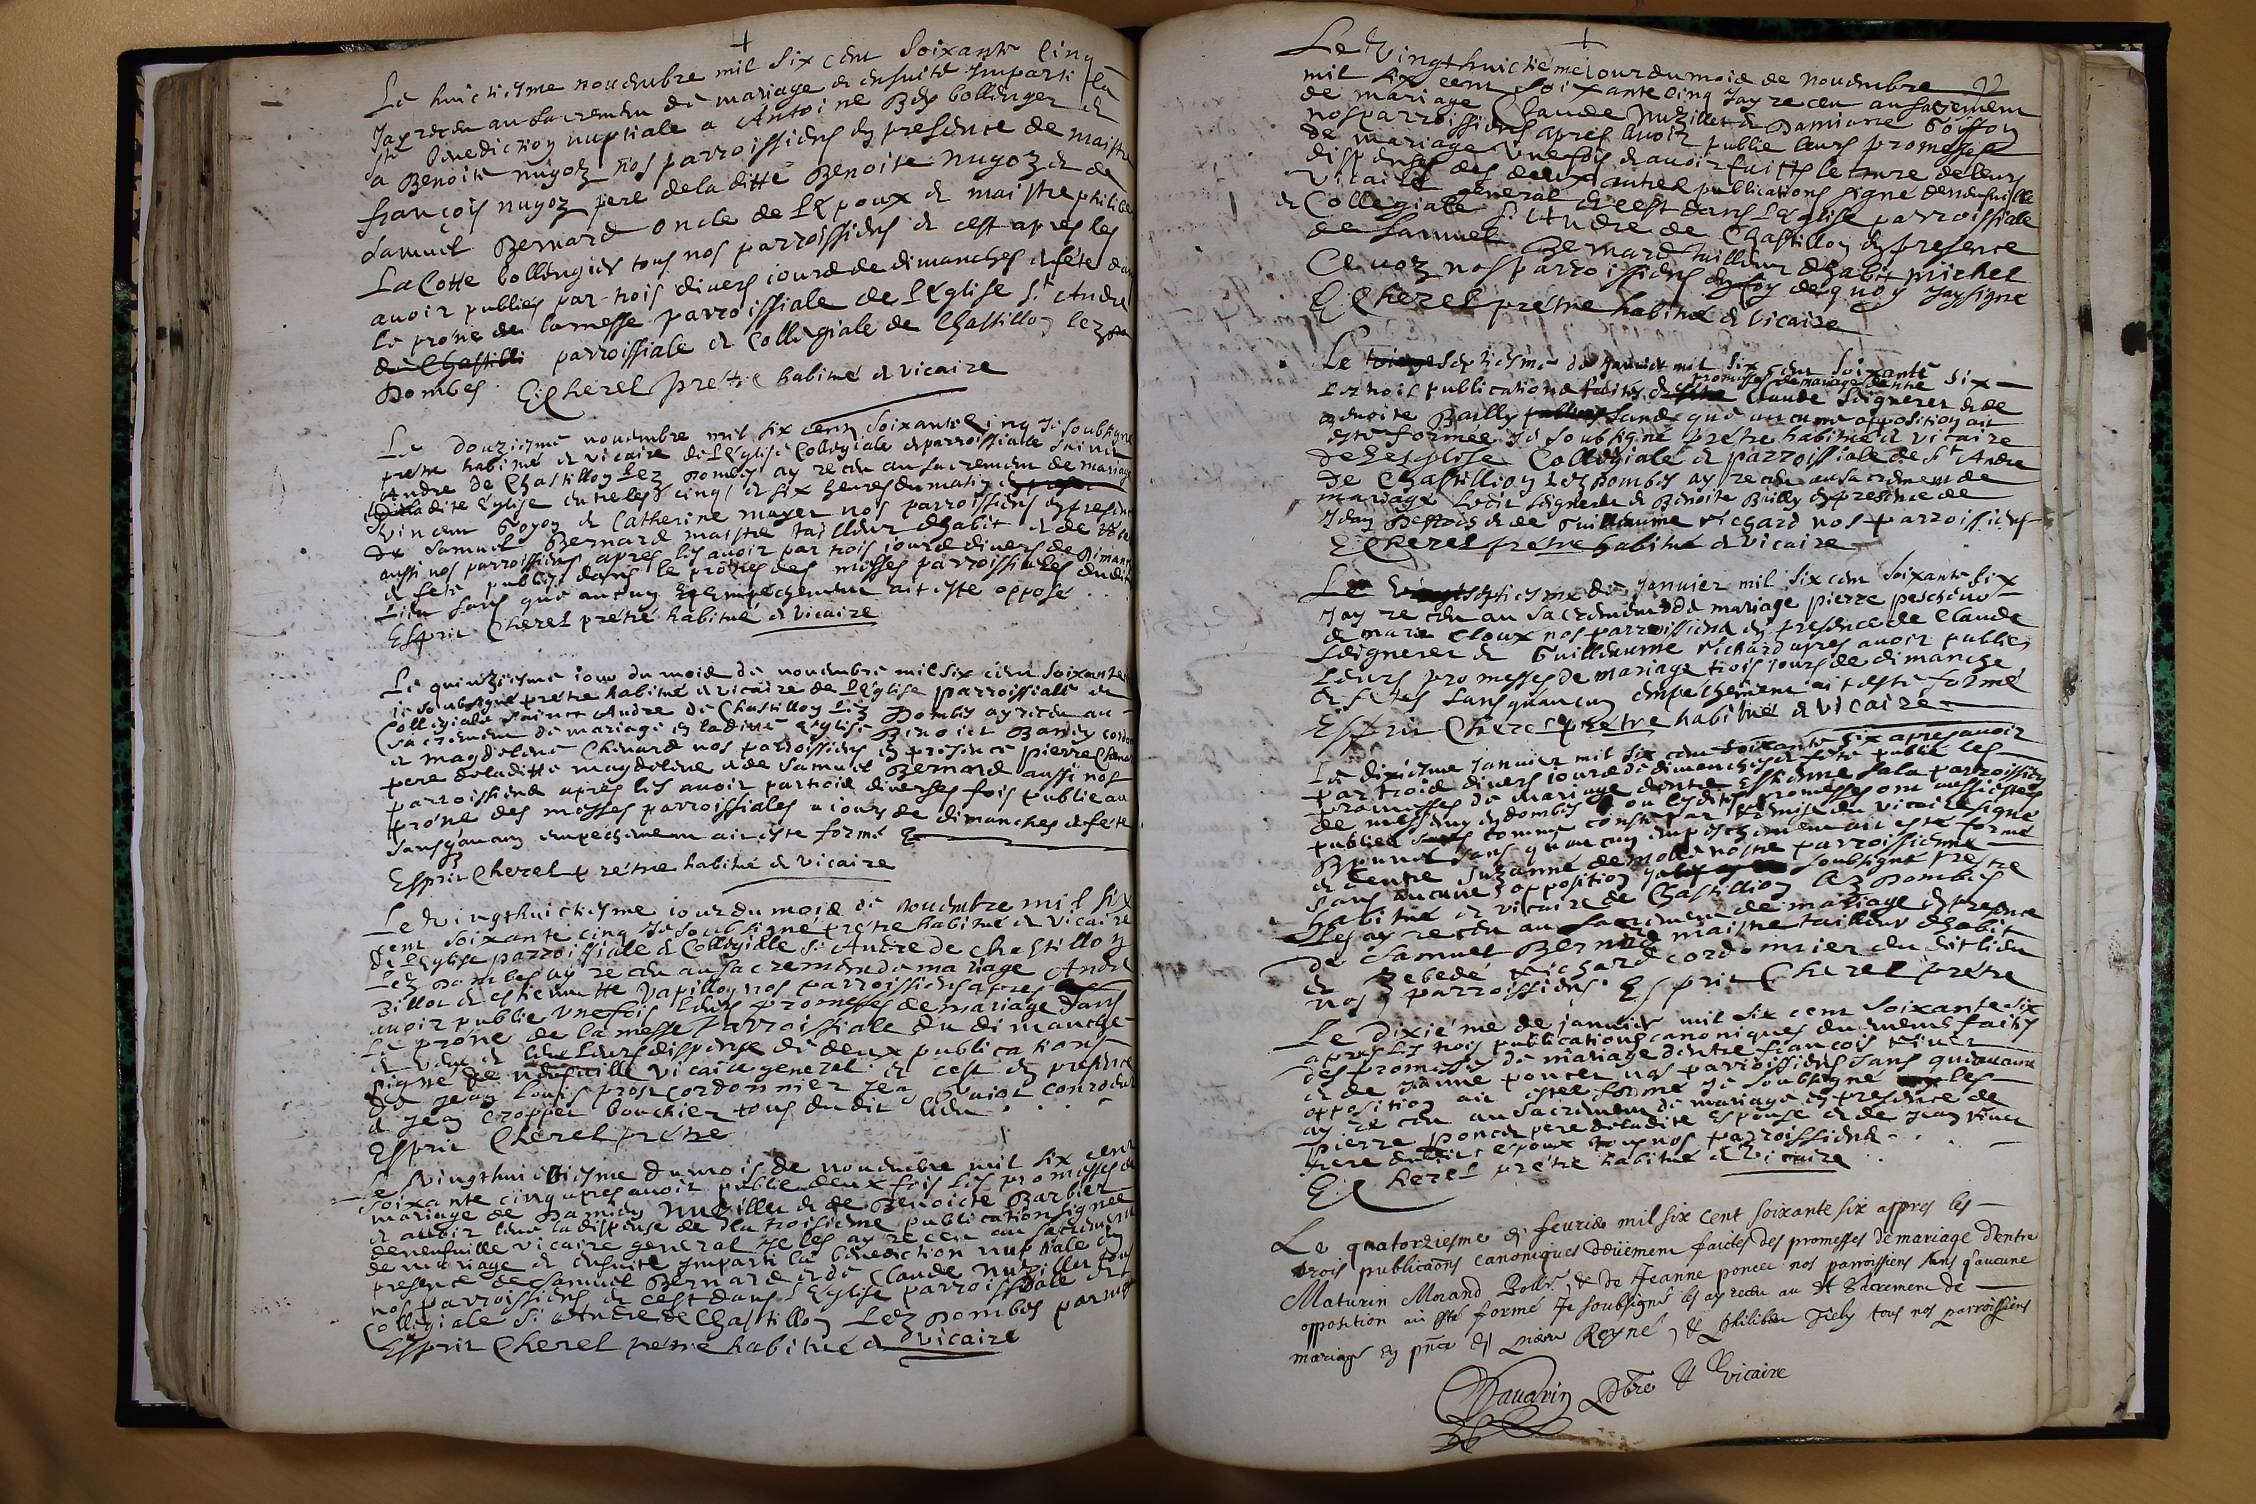 Le huictiesme nouembre mil six cent soixante cinq
Jay receu au sacrement de mariage et ensuite Imparti la
ste benediction nuptiale a Antoine Bey bollenger et
a Benoite nugoz nos parroissiens en presence de maistre
françois nugoz pere de la ditte Benoite nugoz et de
samuel Bernard oncle de l'Epoux et maistre philibe
La Cotte bollengier tous nos parroissiens et cest apres les
auoir publies par trois diuers iours de dimanches et fete dans
le prone de la messe parroissiale de l'Eglise st André
parroissiale et Collegiale de Chastillon lez
Dombes. E: Cherel prestre habitué et vicaire
Le douziesme nouembre mil six cent soixante cinq Je soubsigné
prestre habitué et vicaire de l'Eglise Collegiale et parroissialle sainct
Andre de Chastillon lez Dombes ay receu au sacrement de mariage
ladite Eglise entre les cinq et six heures du matin
vincent Goyon et Catherine mayer nos parroissiens en presence
de samuel Bernard maistre tailleur d'habit et de
aussi nos parroissiens apres les auoir par trois iours diuers de dimanche
et fete publies dans le prones des messes parroissiales dudit
Lieu sans que aucun empechement ait este opposé . . .
Esprit Cherel prétre habitué et vicaire
Le quinziesme iour du mois de nouembre mil six cent soixante
je soubsigné prétre habitué et vicaire de l'Eglise parroissialle et
Collegialle sainct André de Chastillon lez Dombes ay receu au
sacrement de mariage en laditte Eglise Benoict Bandy
et magdeleine Chenard nos parroissiens en presence pierre Chenard
pere de laditte magdeleine et de samuel Bernard aussi nos
parroissiens apres les auoir par trois diuerses fois publie au
prone des messes parroissiales a iours de dimanches et féte
sans qu'aucun empechement ait este formé
Esprit Cherel prétre habitué et vicaire
Le vingt huictiesme iour du mois de nouembre mil six
cent soixante cinq Je soubsigné prétre habitué et vicaire
de l'Eglise parroissiale et Collegialle st André de Chastillon
lez Dombes ay receu au sacrement de mariage André
Billot et estiennette vapillon nos parroissiens apres
auoir publie vne fois leurs promesses de mariage dans
le prône de la messe parroissiale du dimanche
et veu et leu leurs dispense de deux publications
signé de vicaire general et cest en presence
de Jean Louys prost cordonnier Jean
et Jean Cropet bouchier tous dudit lieu . . .
Esprit Cherel pretre
Le vingt huictiesme du mois de nouembre mil six cent
soixante cinq apres auoir publie deux fois les promesses de
mariage de Damien nuzillet et de Benoicte Barbier
et auoir leur la dispense de la troisieme publication signée
deneufuille vicaire general Je les ay receu au sacrement
de mariage et ensuite Imparti la benediction nuptiale en
presence de samuel Bernard et de Claude nuzillet tous
nos parroissiens et cest dans l'Eglise parroissiale et
Collegiale st André de Chastillon lez Dombes par moy
Esprit Cherel pretre habitué et vicaire
Le vingt huictiéme iour du mois de nouembre
mil six cent soixante cinq Jay receu au sacrement
de mariage Claude nuzillet et Damiane Goiffon
nos parroissiens apres auoir publie leurs promesses
de mariage vne fois et auoir faitte lecture de leurs
dispenses des deux autres publications signé deneufuille
vicaire general et cest dans l'Eglise parroissiale
et Collegiale st Andre de Chastillon en presence
de samuel Bernard tailleur d'habit michel
Ceuoz nos parroissiens en foy de quoy Jay signé
E: Cherel prétre habitué et vicaire
Le septiesme de Januier mil six cent soixante six
Les trois publications faites des promesses de mariage dentre Claude seignerer et de
Benoite Bailly sans que aucune opposition ait
esté formée Je soubsigné prétre habitué et vicaire
de l'esglise Collegiale et parroissiale de st André
de Chastillion lez Dombes ay receu au sacrement de
mariage Ledit seignerer et Benoite Bailly en presence de
Jean et de Guillaume richard nos parroissiens
E: Cherel prétre habitué et vicaire
Le septiesme de Januier mil six cent soixante six
Jay receu au sacrement de mariage pierre
et marie Cloux nos parroissiens en presence de Claude
seignerer et Guillaume richard apres auoir publies
leurs promesses de mariage trois iours de dimanche
et fétes sans qu'aucun empechement ait esté formé
Esprit Cherel prétre habitué et vicaire
Le dixiesme Januier mil six cent soixante six apres auoir
par trois diuers iours de dimenches et féte publié les
promesses de mariage dentre Estienne sala parroissien
de en dombes ou lesdittes promesses ont aussi estées
publies comme conste par remise du vicaire signé
Brunet sans qu'aucun empeschement ait esté formé
et dentre suzanne nostre parroissienne
sans aucune opposition soubsigné prestre
habitué et vicaire de Chastillion lez Dombes
les ay receu au sacrement de mariage en presence
de samuel Bernard maistre tailleur d'habit
et Zebedé richard cordonnier du dit lieu
nos parroissiens Esprit Cherel prétre
Le dixiéme de januier mil six cent soixante six
apres les trois publications canoniques duement faites
des promesses de mariage dentre françois viuer
et de Janne poncet nos parroissiens sans qu'aucune
opposition ait estée formé Je soubsigné les
ay receu au sacrement de mariage en presence de
pierre poncet pere de ladite Espouse et de Jean viuer
pere dudit epoux tous nos parroissiens . .
E: Cherel prétre habitué et vicaire
Le quatorziesme de feurier mil six cent soixante six appres les
trois publicaõns canoniques deüement faictes des promesses de mariage d'entre
Maturin Morand et de Jeanne poncet nos parroissiens sans q'aucune
opposition ait esté formé Je soubsigné les ay receu au st Sacrement de
mariage en pñce de pierre Reyné, et philibert Tiely tous nos parroissiens
Vaudrin pbre & Vicaire